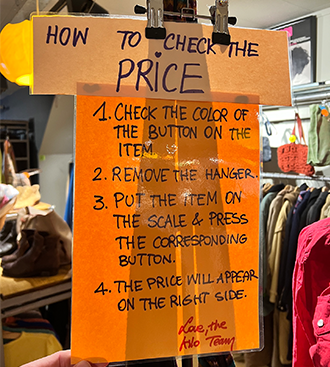 HOW TO CHECK THE
PRICE
1. CHECK THE COLOR OF
THE BUTTON ON THE
ITEM
2. REMOVE THE HANGER.
3. PUT THE ITEM ON
THE SCALE & PRESS
THE CORRESPONDING
BUTTON.
4. THE PRICE WILL APPEAR
ON THE RIGHT SIDE.
Love, the
Team